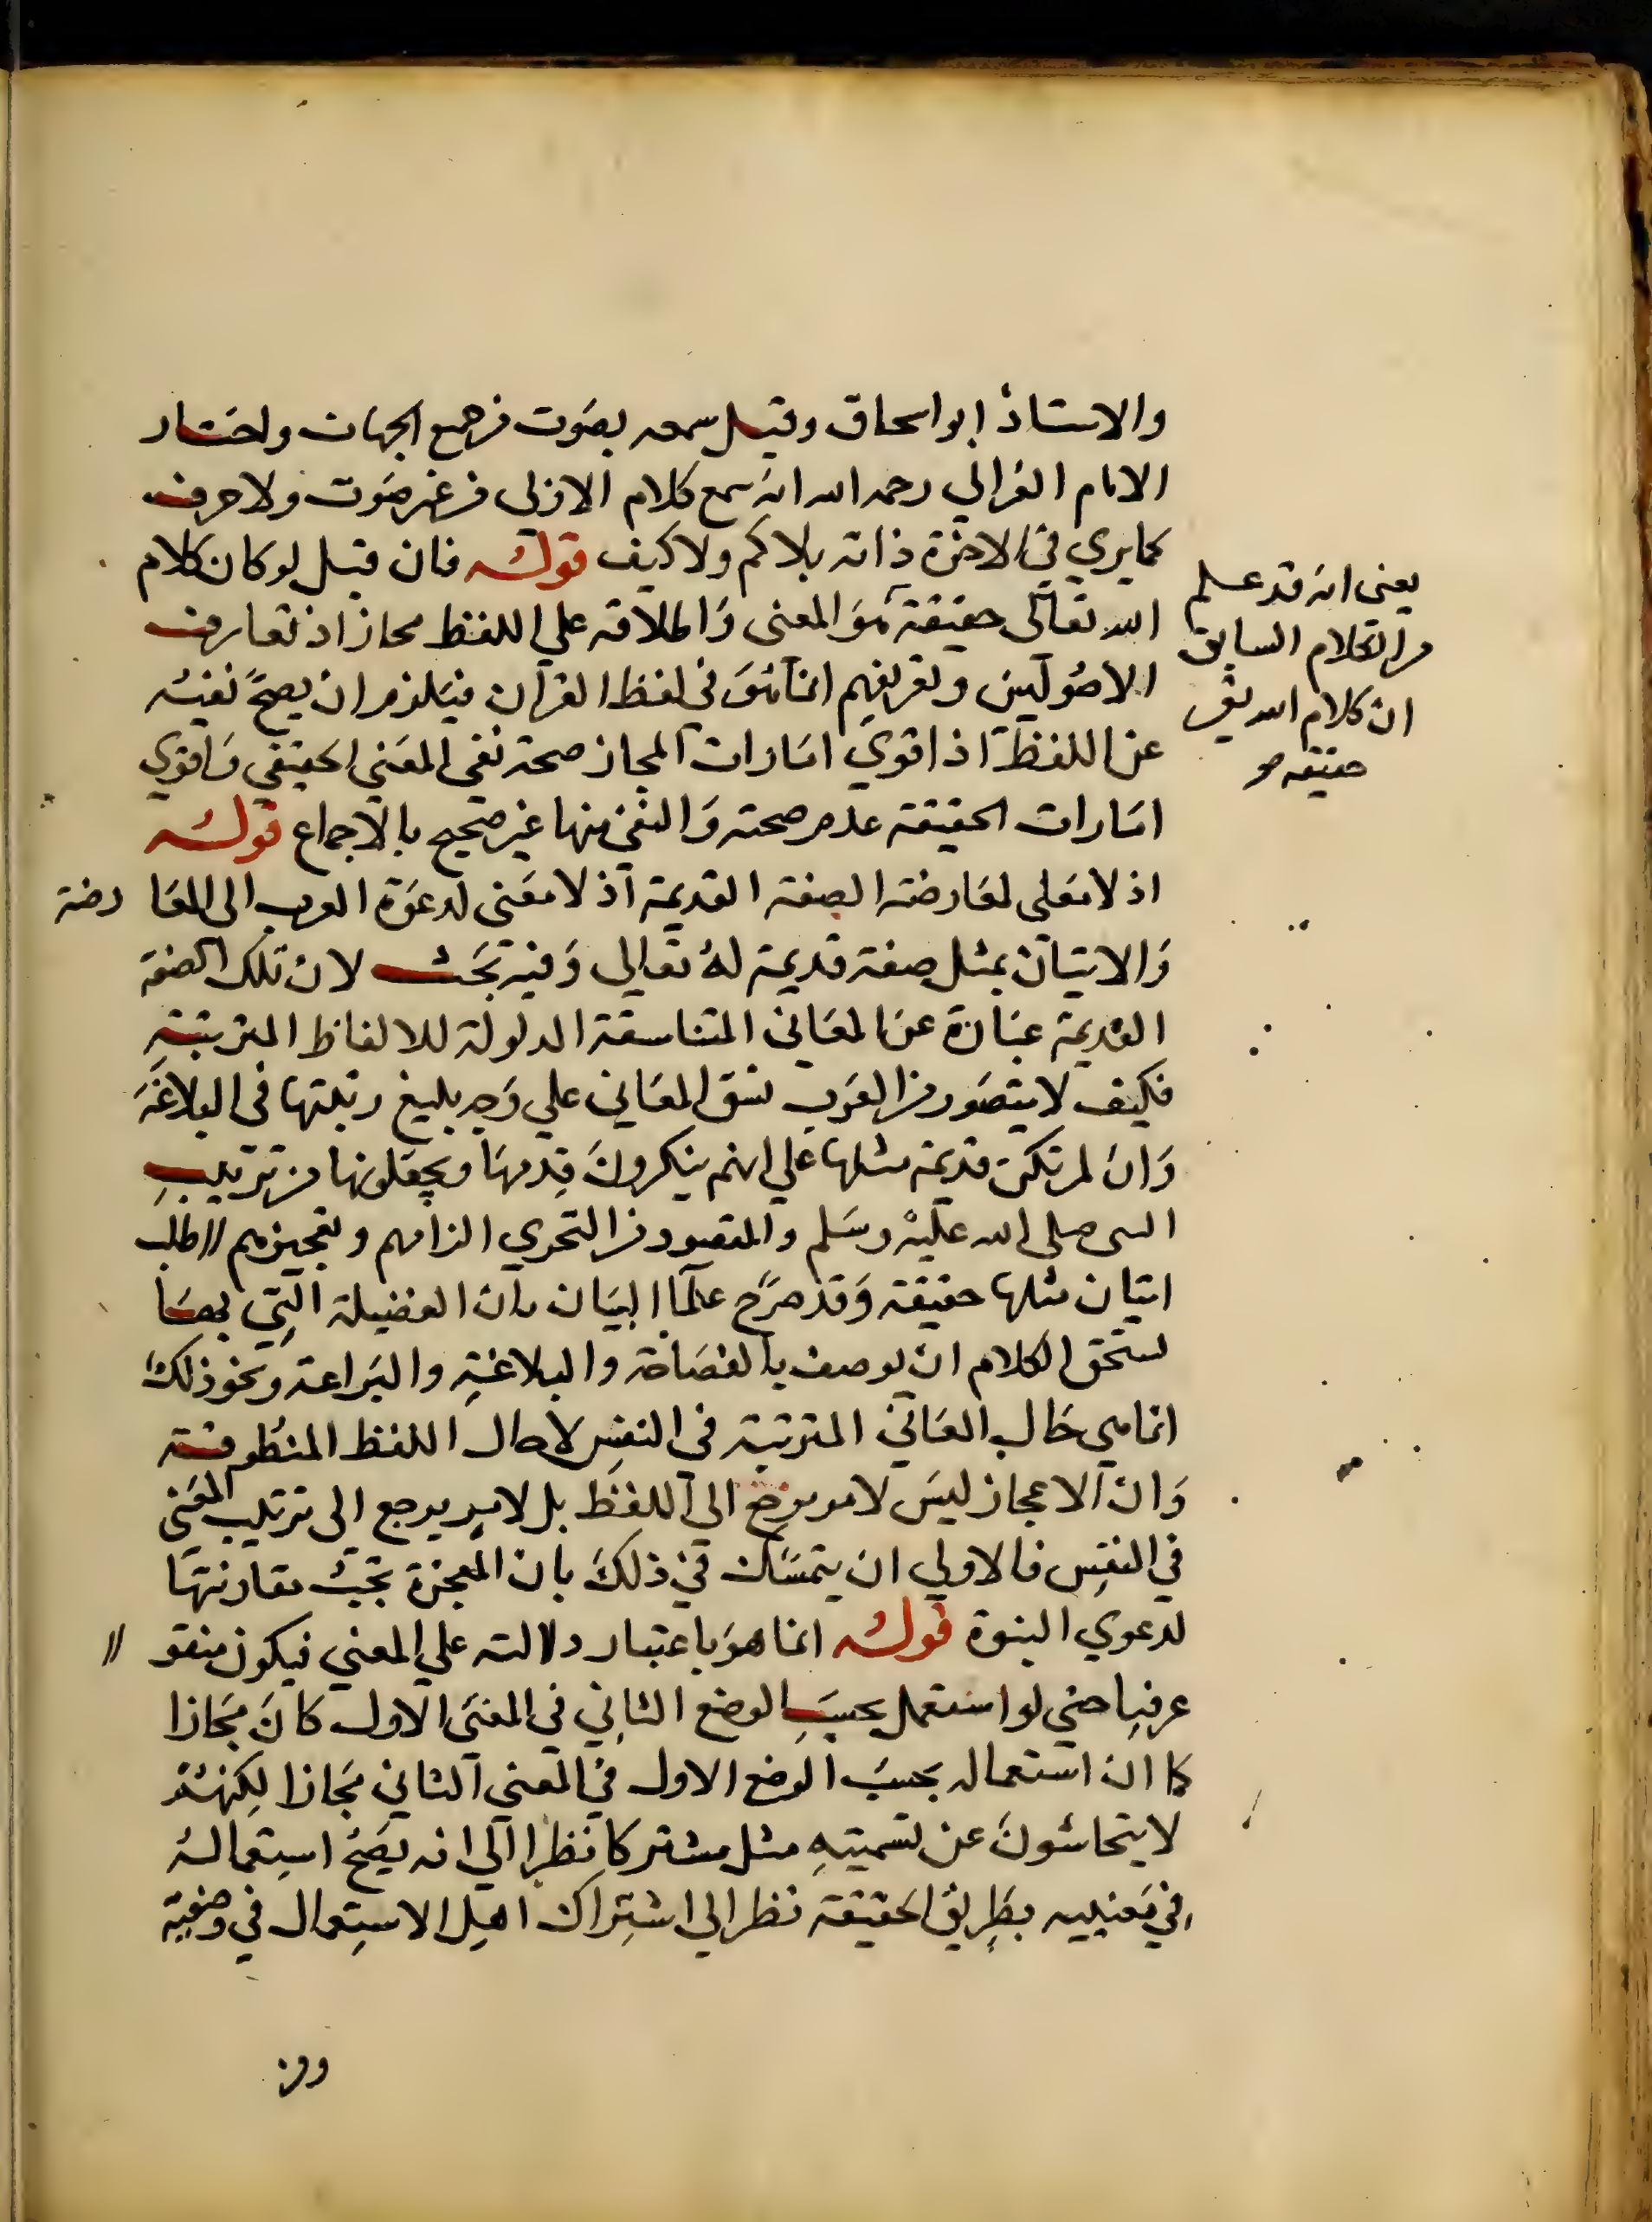 والاستاذ ابو اسحاق وقيل سمعه بصوت من جميع الجهات واختار
الامام الغزالي رحمه الله انه سمع كلام الازلي من غير صوت ولا حرف
كما يري في الاخرة ذاته بلا كم ولا كيف قوله فان قيل لو كان كلام
الله تعالى حقيقة هو المعنى واطلاقه علي اللفظ مجاز اذ تعارف
الاصوليين وتعريفهم انما هو في لفظ القرآن فيلزم ان يصح نفيه
عن اللفظ اذ اقوي امارات المجاز صحة نفى المعنى الحقيقي واقوي
امارات الحقيقة عدم صحته والنفى منها غير صحيح بالاجماع قوله
اذ لا معلى لمعارضة الصفة القديمة اذ لا معنى لدعوة العرب الى المعا رضة
والاتيان بمثل صفة قديمة له تعالى وفيه بحث لان تلك الصفة
القديمة عبارة عن المعاني المتناسقة المدلولة للالفاظ المترتبة
فكيف لا يتصور من العرب نسق المعاني علي وجه بليغ رتبتها فى البلاغة
وان لم تكن قديمة مثلها علي انهم ينكرون قدمها ويجعلونها من ترتيب
النبى صلى الله عليه وسلم والمقصود من التحري الزامهم وتعجيزهم لا طلب
اتيان مثلها حقيقة وقد صرح علما البيان بان الفضيلة التي بها
يستحق الكلام ان يوصف بالفصاحة والبلاغة والبراعة ونحو ذلك
انما هي حال المعاني المترتبة في النفس لا حال اللفظ المنطوقة
وان الاعجاز ليس لامر يرجع الى اللفظ بل لامر يرجع الى ترتيب المعنى
في النفس فالاولي ان يتمسك في ذلك بان المعجزة تجب مقارنتها
لدعوي النبوة قوله انما هو باعتبار دلالته علي المعني فيكون منقو لا
عرفيا حتي لو استعمل بحسب الوضع الثاني في المعنى الاول كان مجازا
كما ان استعماله بحسب الوضع الاول في المعني الثاني مجازا لكنهم
لا يتحاشون عن تسميته مثل مشتركا نظرا الي انه يصح استعماله
في معنييه بطريق الحقيقة نظرا الي اشتراك اهل الاستعمال في وضعيه
يعنى انه قد علم
من الكلام السابق
ان كلام الله تع
حقيقة هو